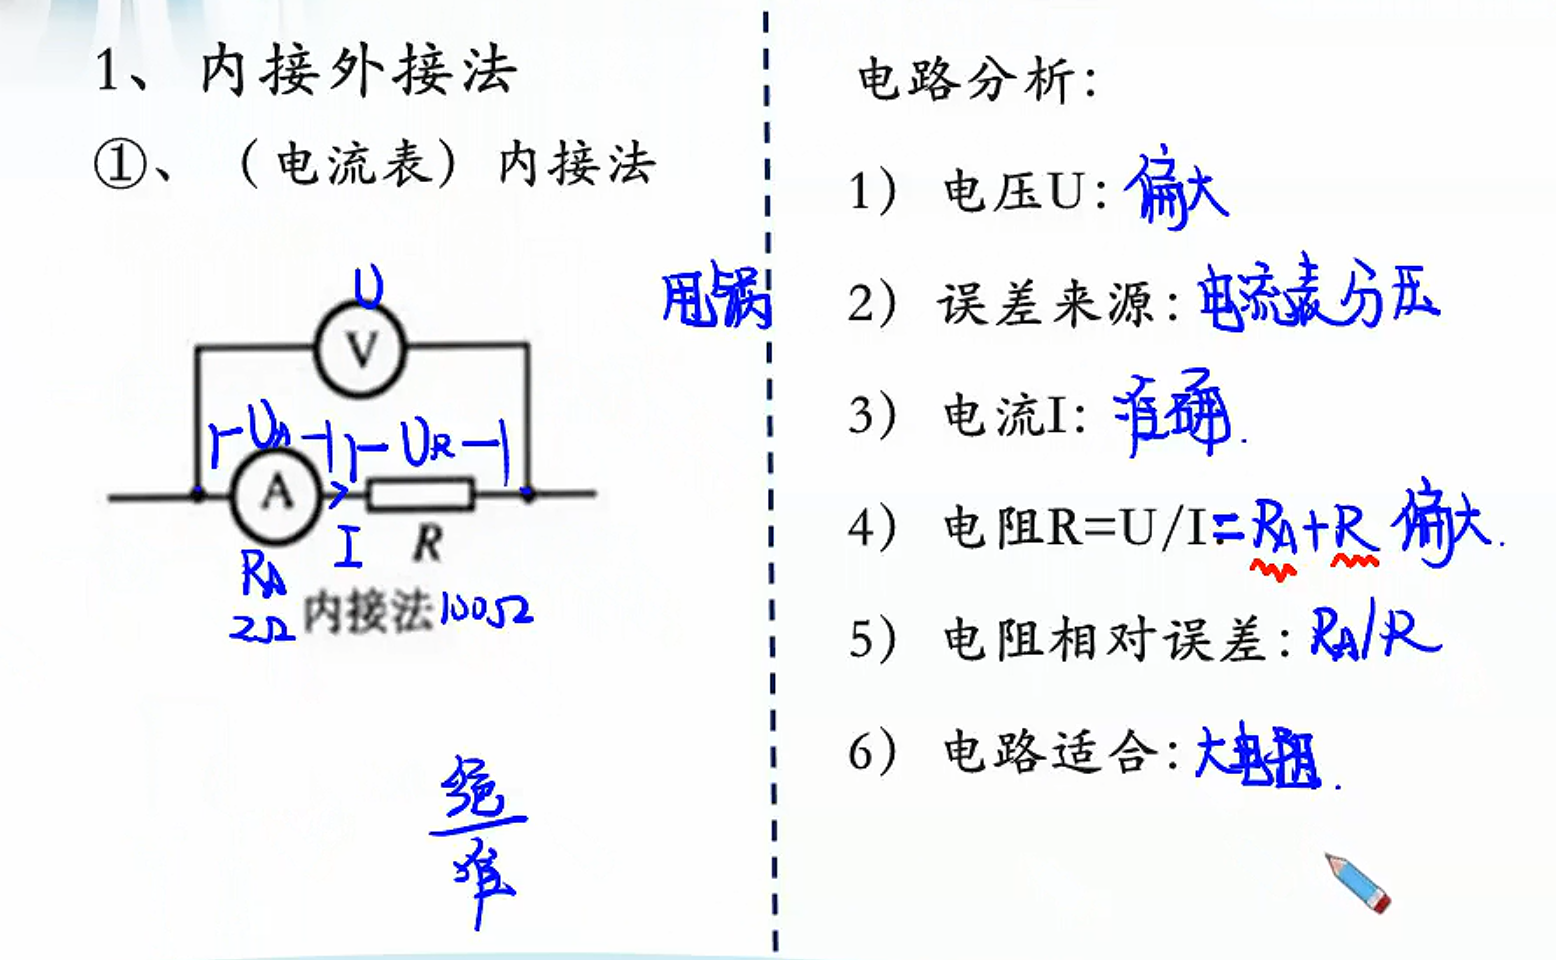 1、内接外接法
①、（电流表）内接法
U
V
U_A
U_R
A
I
R
R_A
2Ω
内接法
100Ω
绝
准
甩锅
电路分析：
1） 电压U：偏大
2） 误差来源：电流表分压
3） 电流I：准确.
4） 电阻R=U/I=R_A+R 偏大.
5） 电阻相对误差：R_A/R
6） 电路适合：大电阻.